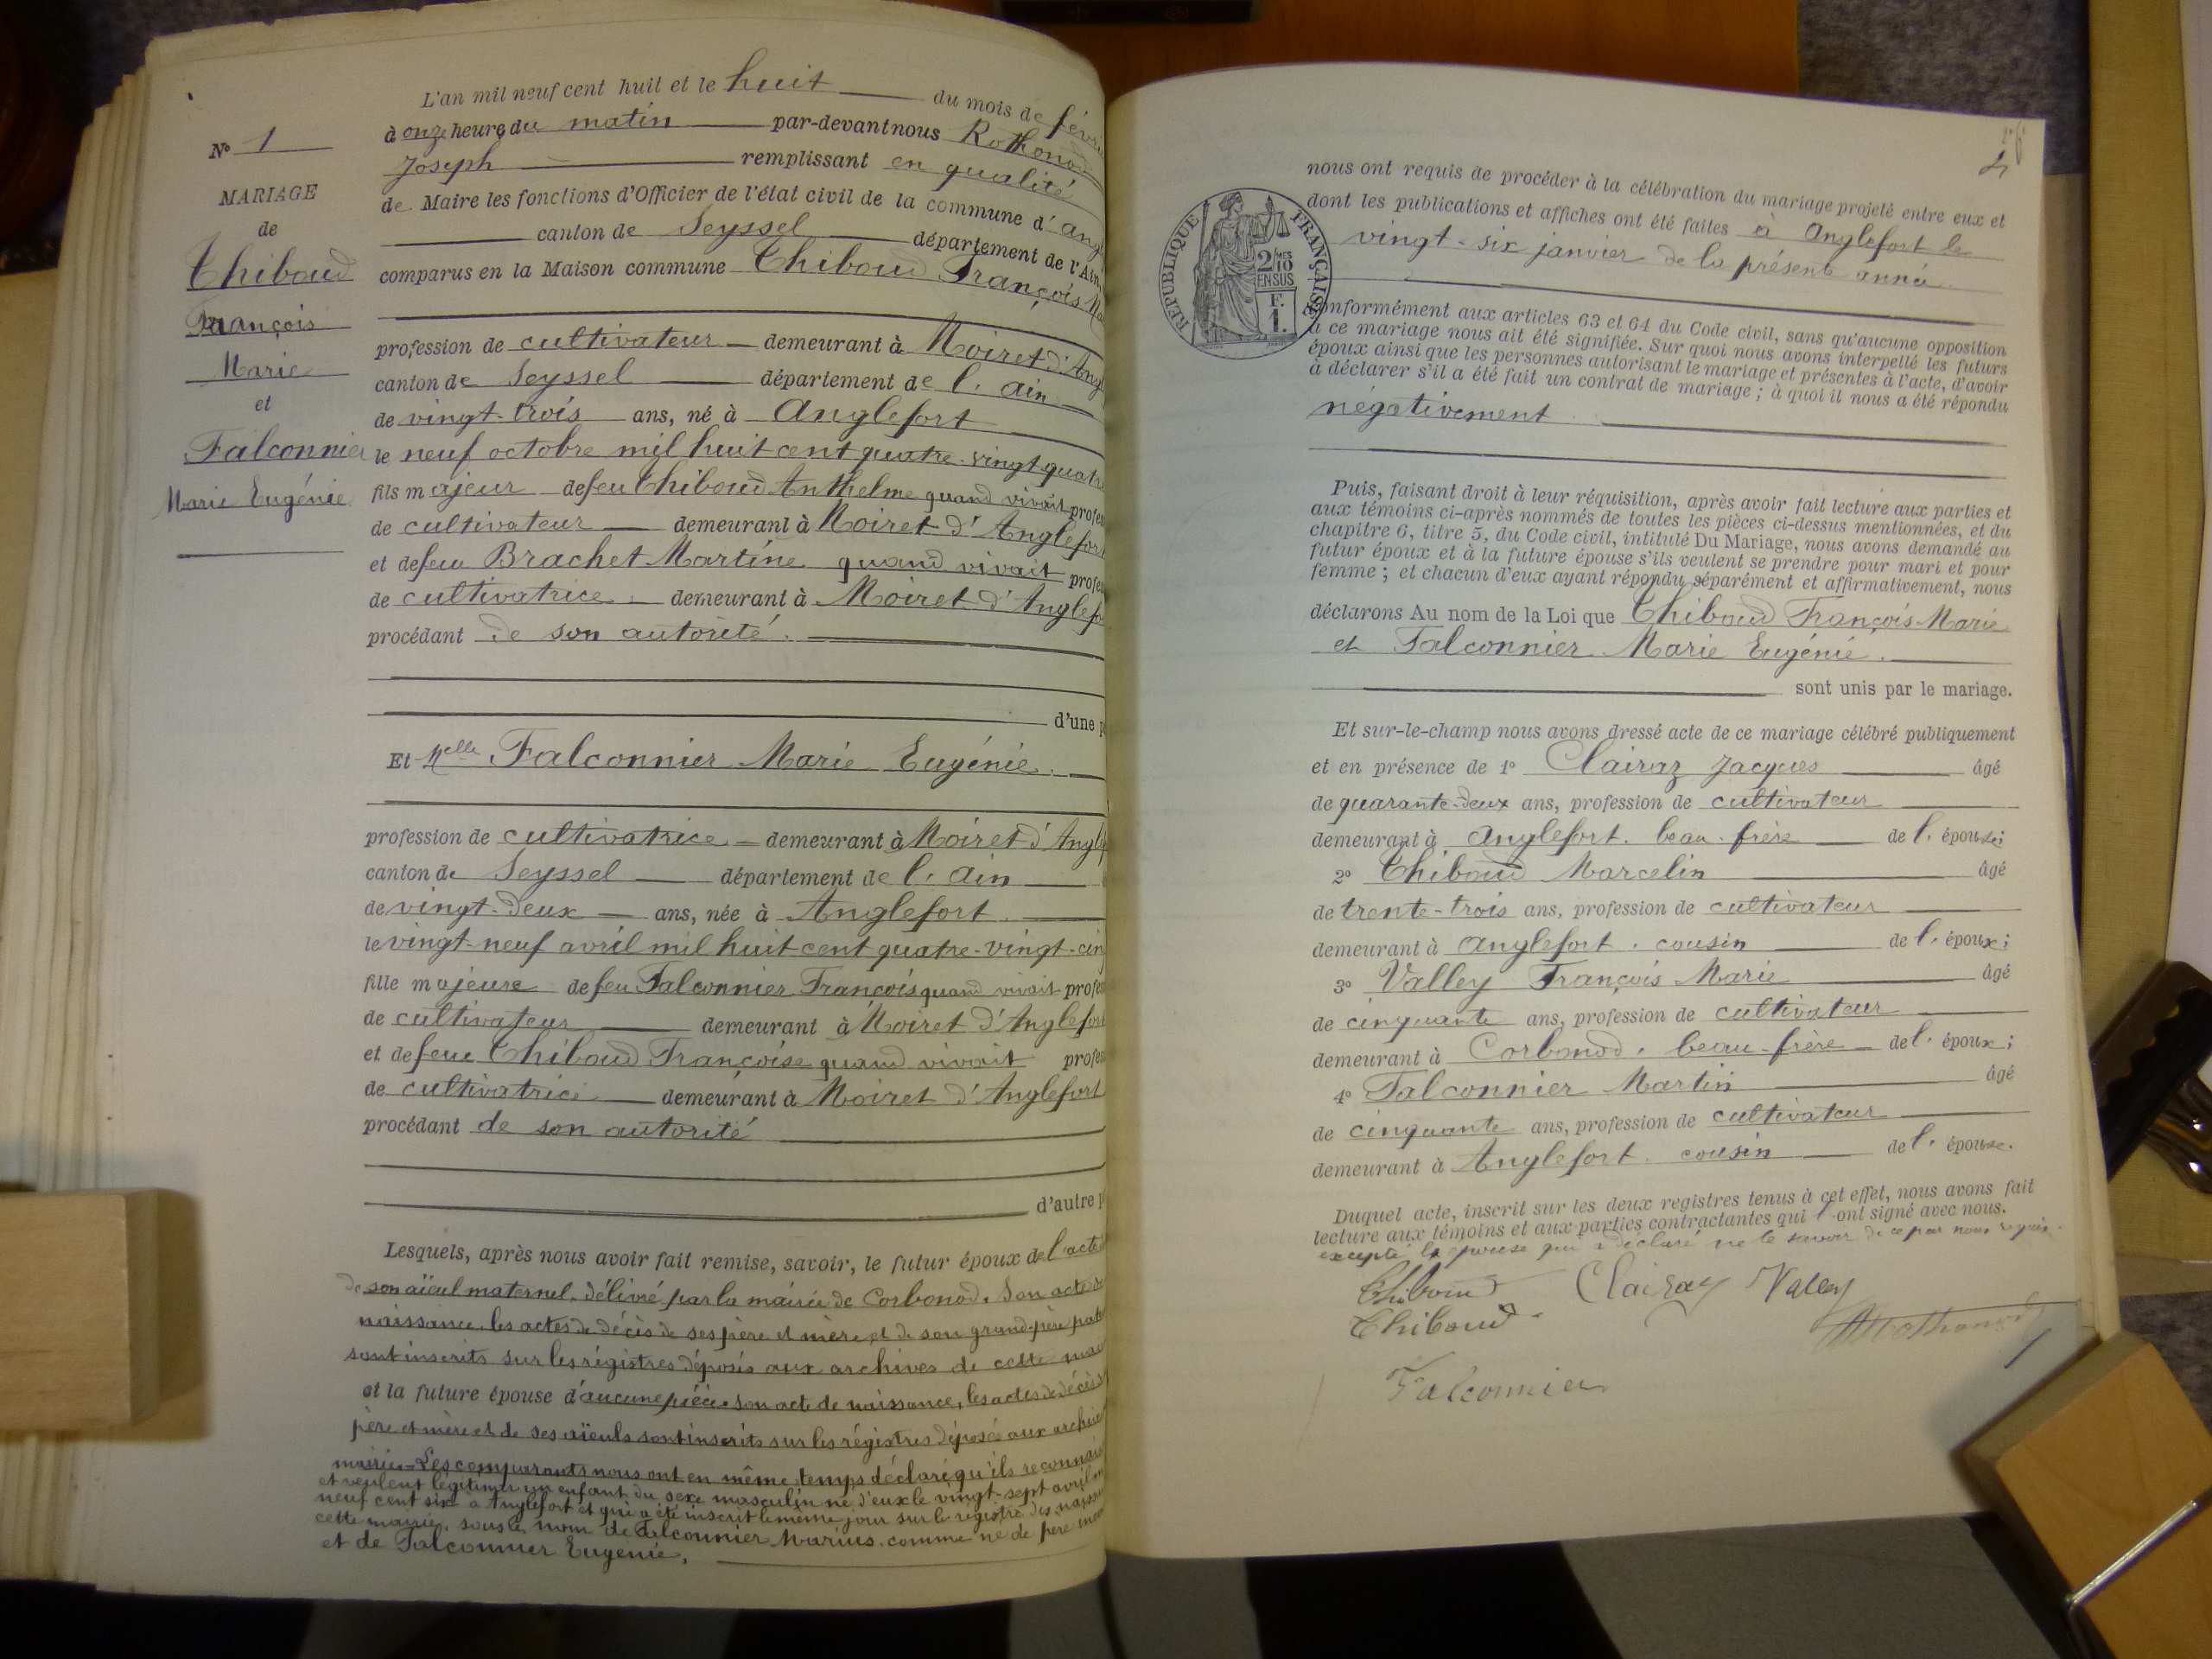 N° 1
MARIAGE
de
Thiboud
François
Marie
et
Falconnier
Marie Eugénie
L'an mil neuf cent huit et le huit du mois de
à onze heure du matin par-devant nous Rothonod
Joseph remplissant en qualité
de Maire les fonctions d'Officier de l'état civil de la commune d'
canton de Seyssel département de l'Ain
comparus en la Maison commune Thiboud François
profession de cultivateur demeurant à Moiret d'
canton de Seyssel département de l'ain
de vingt-trois ans, né à Anglefort
le neuf octobre mil huit cent quatre-vingt-quatre
fils majeur de feu Thiboud Anthelme quand vivait
de cultivateur demeurant à Moiret d'Anglefort
et de feu Brachet Martine quand vivait
de cultivatrice demeurant à Moiret d'
procédant de son autorité.
d'une
Et Melle Falconnier Marie Eugénie.
profession de cultivatrice demeurant à Moiret d'
canton de Seyssel département de l'ain
de vingt-deux ans, née à Anglefort
le vingt-neuf avril mil huit cent quatre-vingt-cinq
fille majeure de feu Falconnier François quand vivait
de cultivateur demeurant à Moiret d'Anglefort
et de feue Thiboud Françoise quand vivait
de cultivatrice demeurant à Moiret d'Anglefort
procédant de son autorité
d'autre
Lesquels, après nous avoir fait remise, savoir, le futur époux de l'acte
de son aïeul maternel, délivré par la mairie de Corbonod. Son acte de
naissance, les actes de décès de ses père et mère et de son grand-père
sont inscrits sur les régistres déposés aux archives de cette
et la future épouse d'aucune pièce son acte de naissance, les actes de décès
père et mère et de ses aïeuls sont inscrits sur les régistres déposés aux
mairie = Les comparants nous ont en même temps déclaré qu'ils
et veulent légitimer un enfant du sexe masculin né d'eux le vingt-sept avril
neuf cent six à Anglefort et qui a été inscrit le même jour sur le registre des
cette mairie, sous le nom de Falconnier Marius comme né de père
et de Falconnier Eugénie,
nous ont requis de procéder à la célébration du mariage projeté entre eux et
dont les publications et affiches ont été faites à Anglefort le
vingt-six janvier de la présente année
RÉPUBLIQUE FRANÇAISE
2/10 MES
EN SUS
F.
1.
conformément aux articles 63 et 64 du Code civil, sans qu'aucune opposition
à ce mariage nous ait été signifiée. Sur quoi nous avons interpellé les futurs
époux ainsi que les personnes autorisant le mariage et présentes à l'acte, d'avoir
à déclarer s'il a été fait un contrat de mariage ; à quoi il nous a été répondu
négativement
Puis, faisant droit à leur réquisition, après avoir fait lecture aux parties et
aux témoins ci-après nommés de toutes les pièces ci-dessus mentionnées, et du
chapitre 6, titre 5, du Code civil, intitulé Du Mariage, nous avons demandé au
futur époux et à la future épouse s'ils veulent se prendre pour mari et pour
femme ; et chacun d'eux ayant répondu séparément et affirmativement, nous
déclarons Au nom de la Loi que Thiboud François Marie
et Falconnier Marie Eugénie.
sont unis par le mariage.
Et sur-le-champ nous avons dressé acte de ce mariage célébré publiquement
et en présence de 1° Clairaz Jacques âgé
de quarante-deux ans, profession de cultivateur
demeurant à Anglefort. beau-frère de l'épouse;
2° Thiboud Marcelin âgé
de trente-trois ans, profession de cultivateur
demeurant à Anglefort. cousin de l'époux;
3° Valley François Marie âgé
de cinquante ans, profession de cultivateur
demeurant à Corbonod. beau-frère de l'époux;
4° Falconnier Martin âgé
de cinquante ans, profession de cultivateur
demeurant à Anglefort. cousin de l'épouse.
Duquel acte, inscrit sur les deux registres tenus à cet effet, nous avons fait
lecture aux témoins et aux parties contractantes qui l'ont signé avec nous.
excepté la épouse qui a déclaré ne le savoir de ce par nous requis.
Thiboud Clairaz Valley
Thiboud
Falconnier